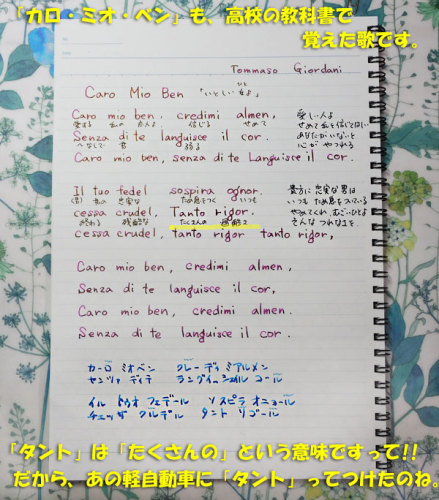 「カロ・ミオ・ベン」も、高校の教科書で
覚えた歌です。
Tommaso Giordani
Caro Mio Ben 「いとしい女よ」
ひと
Caro mio ben, credimi almen, 愛しい人よ
愛する 私の 恋人よ 信じる せめて せめて私を信じてほしい
Senza di te languisce il cor. あなたがいないと
〜なしで 君 弱る 心がやつれる
Caro mio ben, senza di te Languisce il cor.
Il tuo fedel sospira ognor. 貴方に忠実な男は
忠実な ため息をつく いつも いつもため息をついている
cessa crudel, Tanto rigor. やめてくれ、むごいひとよ
終わる 残酷な たくさんの 過酷さ そんなつれなさを
cessa crudel, tanto rigor tanto rigor,
Caro mio ben, credimi almen,
Senza di te languisce il cor,
Caro mio ben, credimi almen.
Senza di te languisce il cor.
カーロ ミオベン クレーディミアルメン
センツァ ディテ ラングイーシェイル コール
イル トゥオ フェデール ソスピラ オニョール
チェッサ クルデル タント リゴール
「タント」は「たくさんの」という意味ですって!!
だから、あの軽自動車に「タント」ってつけたのね。